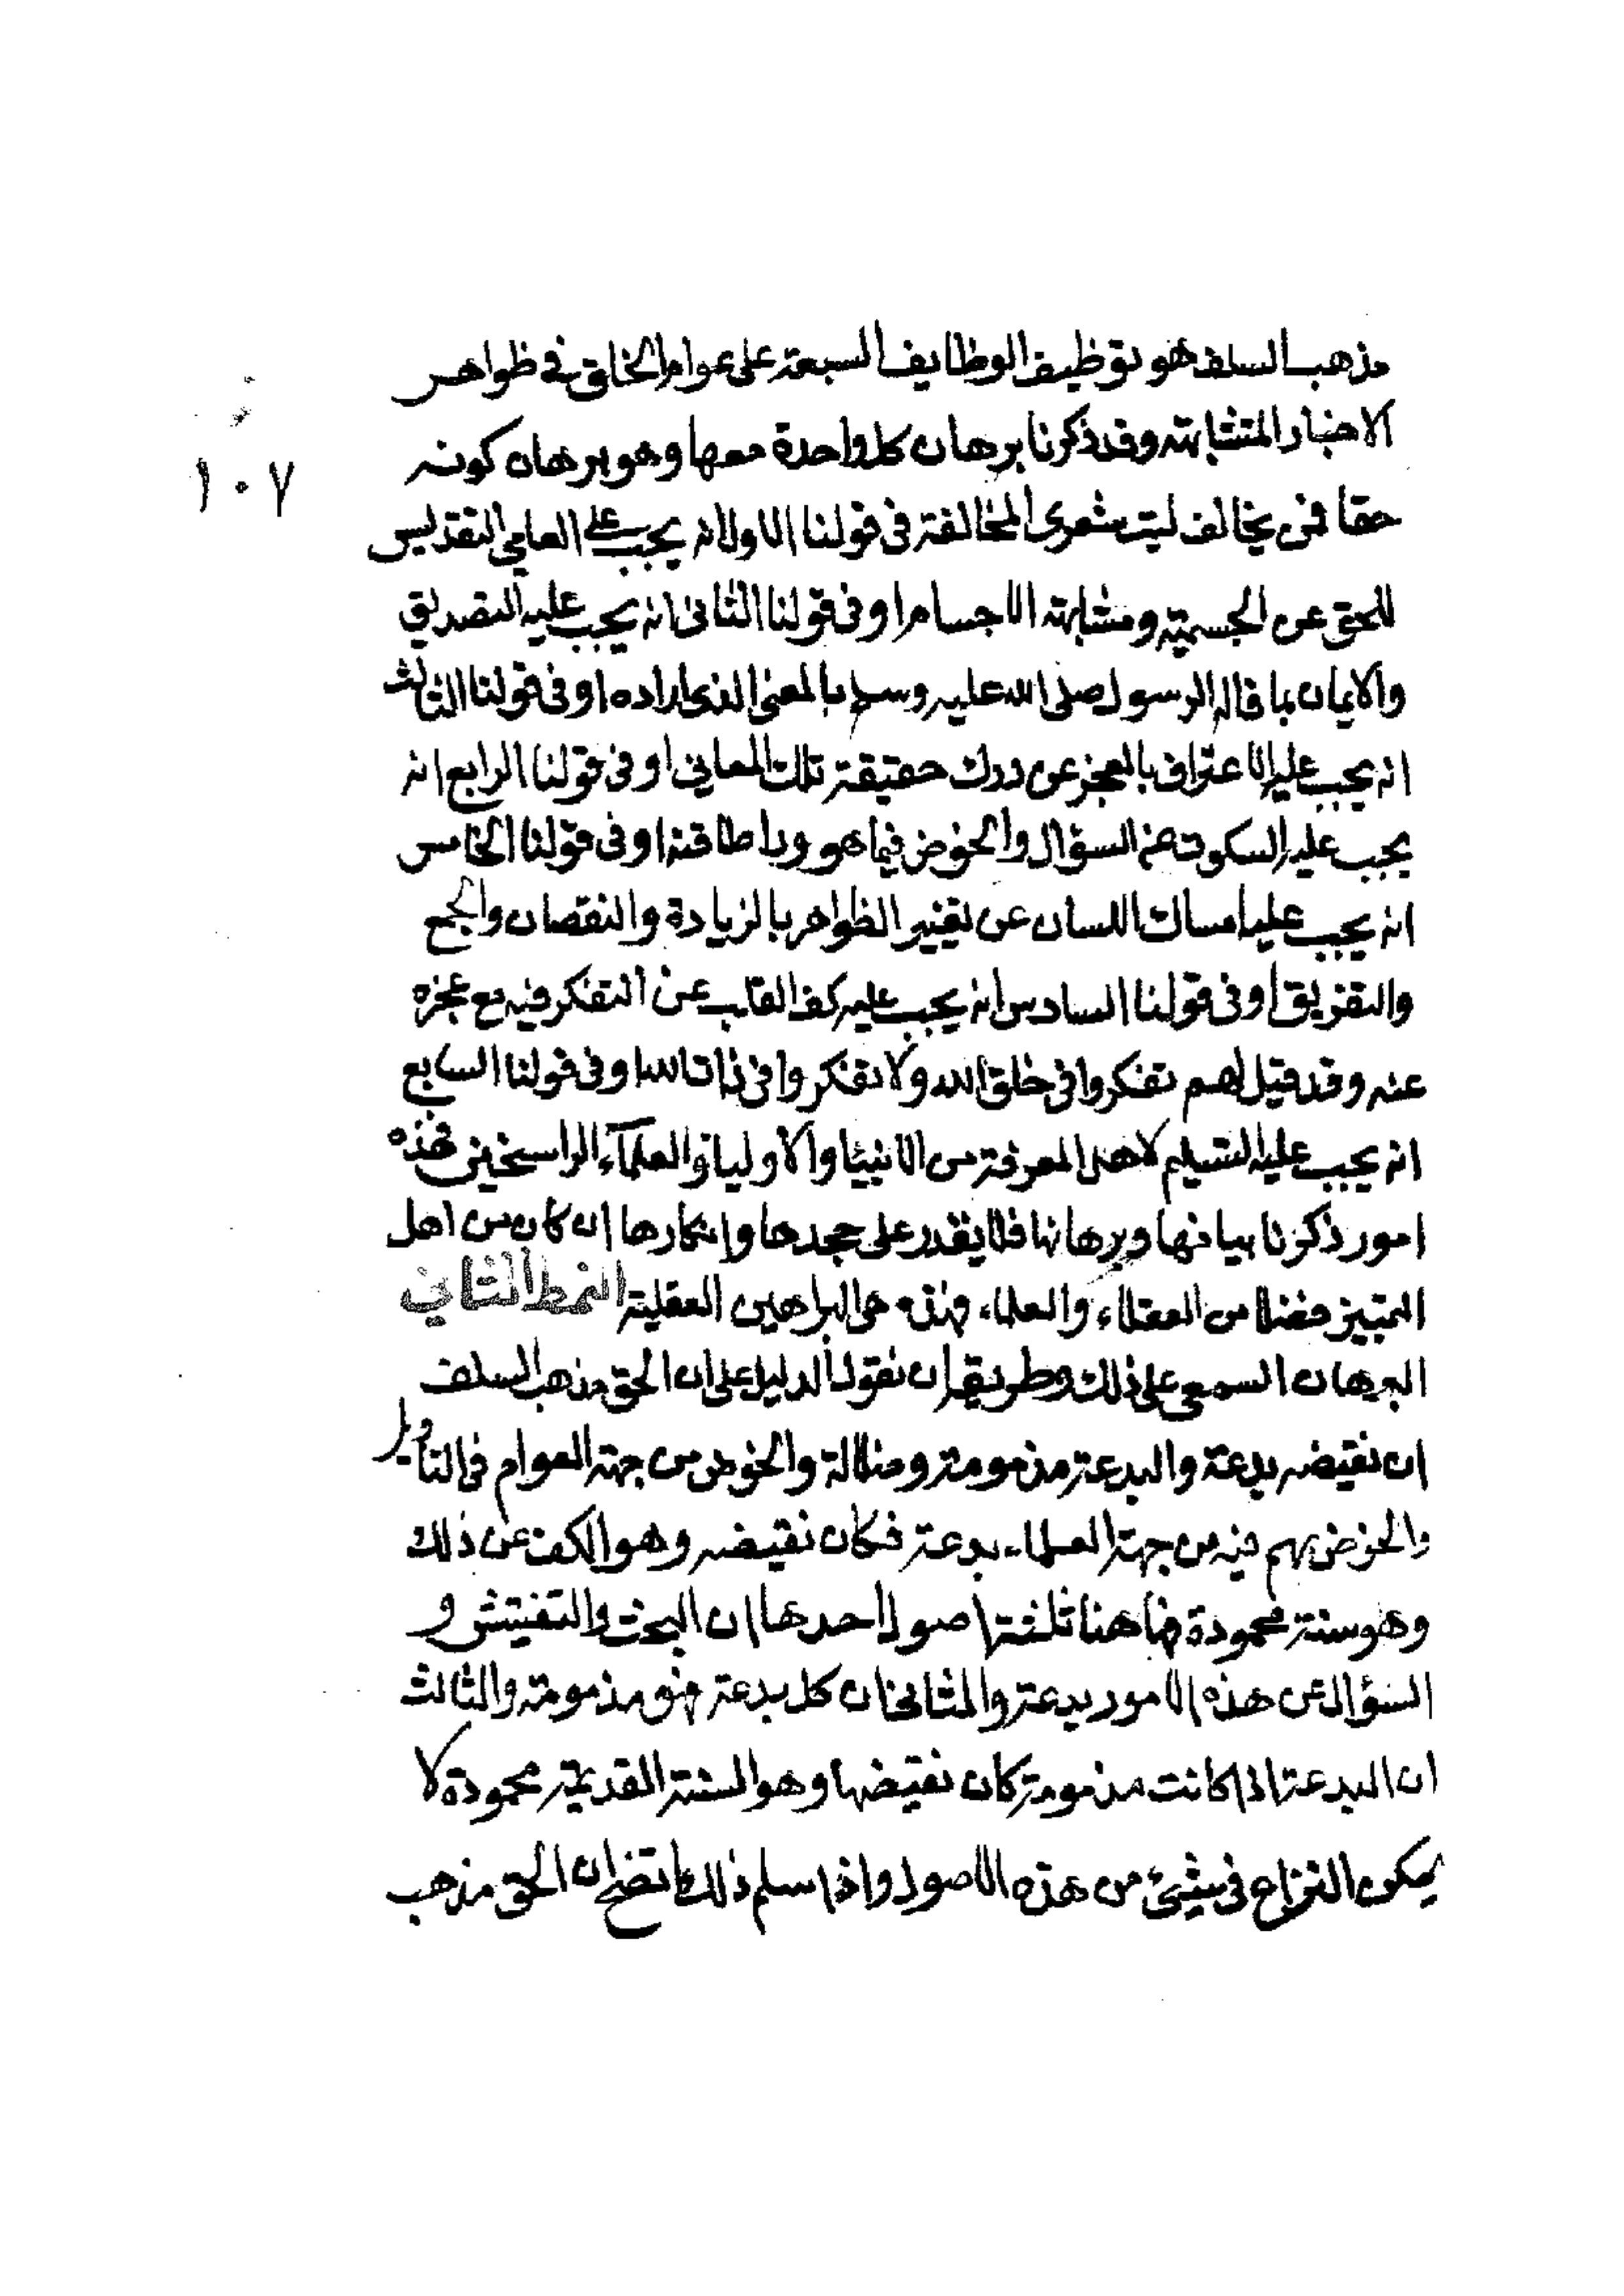 مذهب السلف هو توظيف الوظايف السبعة على عوام الخلق في ظواهر
الاخبار المتشابهة وقد ذكرنا برهان كل واحدة معها وهو برهان كونه
١٠٧
حقا فمن يخالف ليت شعرى المخالفة فى قولنا الاول انه يجب على العامي التقديس
للحق عن الجسمية ومشابهة الاجسام او فى قولنا الثانى انه يجب عليه التصديق
والايمان بما قاله الرسول صلى الله عليه وسلم بالمعنى الذى اراده او فى قولنا الثالث
انه يجب عليه الاعتراف بالعجز عن درك حقيقة تلك المعاني او فى قولنا الرابع انه
يجب عليه السكوت عن السؤال والخوض فيما هو ورا طاقته او فى قولنا الخامس
انه يجب عليه امساك اللسان عن تغيير الظواهر بالزيادة والنقصان والجمع
والتفريق او فى قولنا السادس انه يجب عليه كف القلب عن التفكر فيه مع عجزه
عنه وقد قيل لهم تفكروا فى خلق الله ولا تفكروا فى ذات الله او فى قولنا السابع
انه يجب عليه التسليم لاهل المعرفة من الانبيا والاوليا والعلمآء الراسخين فهذه
امور ذكرنا بيانها وبرهانها فلا يقدر على جحدها وانكارها ان كان من اهل
التمييز فضلا من العقلاء والعلماء فهذه هى البراهين العقلية النمط الثاني
البرهان السمعى على ذلك وطريقه ان نقول الدليل على ان الحق مذهب السلف
ان نقيضه بدعة والبدعة مذمومة وضلالة والخوض من جهة العوام فى التأويل
والخوض بهم فيه من جهة العلماء بدعة فكان نقيضه وهو الكف عن ذلك
وهو سنة محمودة فهاهنا ثلثة اصول احدها ان البحث والتفتيش و
السؤال عن هذه الامور بدعة والثانى ان كل بدعة فهى مذمومة والثالث
ان البدعة اذا كانت مذمومة كان نقيضها وهو السنة القديمة محمودة لا
يمكن النزاع فى شيئ من هذه الاصول واذا سلم ذلك اتضح ان الحق مذهب